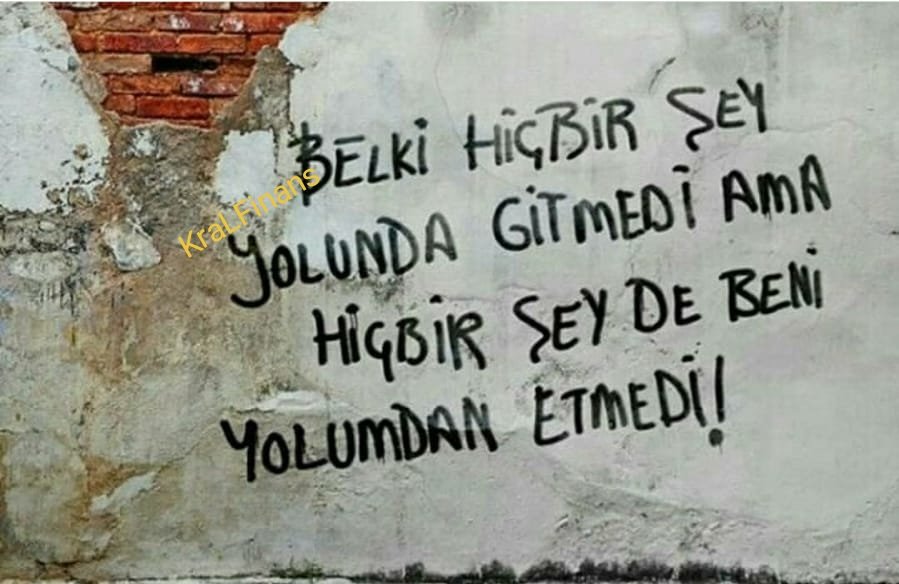 BELKİ HİÇBİR ŞEY
YOLUNDA GİTMEDİ AMA
HİÇBİR ŞEY DE BENİ
YOLUMDAN ETMEDİ!
KraLFinans